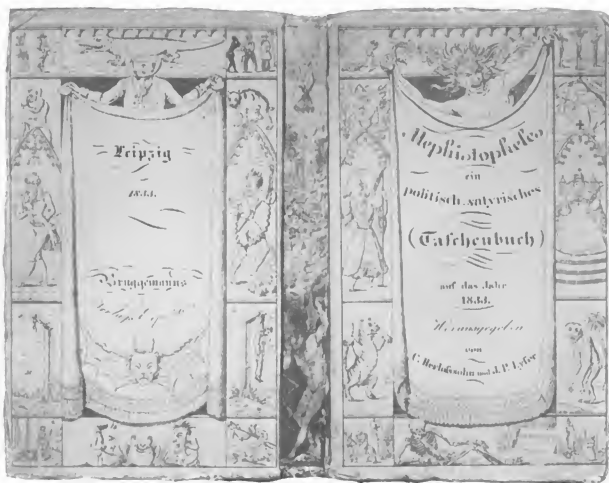 Leipzig
1833.
Brüggemanns
Mephistopheles
ein
politisch-satyrisches
(Taschenbuch)
auf das Jahr
1833.
Herausgegeben
von
C. Herlossohn und J. P. Lyser